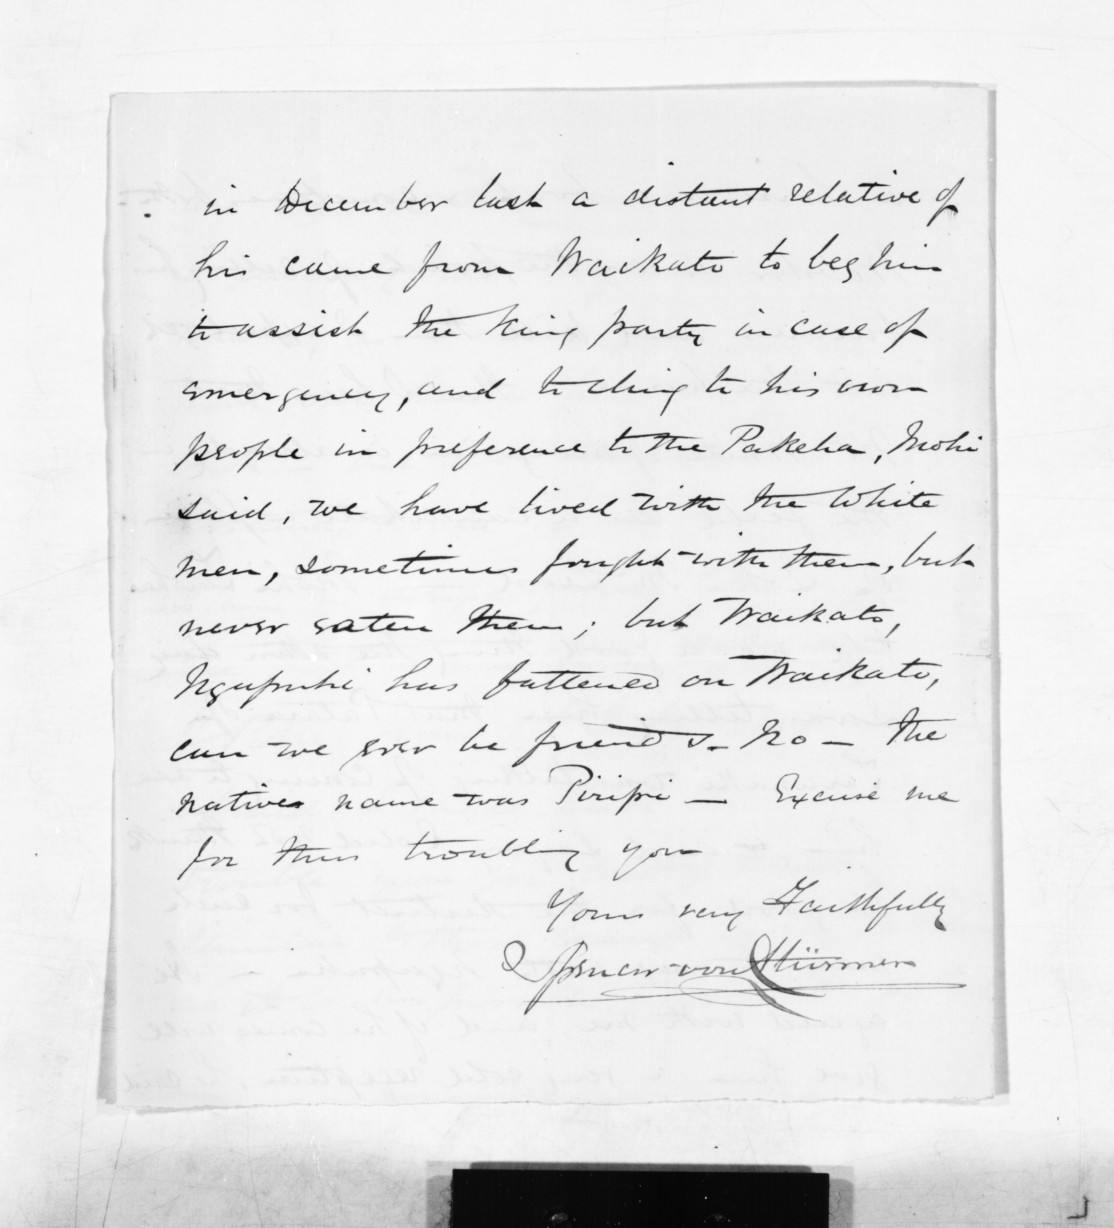 in December last a distant relative of
his came from Waikato to beg him
to assist the King party in case of
emergency, and to cling to his own
people in preference to the Pakeha, Mohi
said, we have lived with the White
men, sometimes fought with them, but
never eaten them; but Waikato,
Ngapuhi has fattened on Waikato,
can we ever be friends - No - the
natives name was Piripi - Excuse me
for thus troubling you
Yours very Faithfully
Spencer von Stürmer